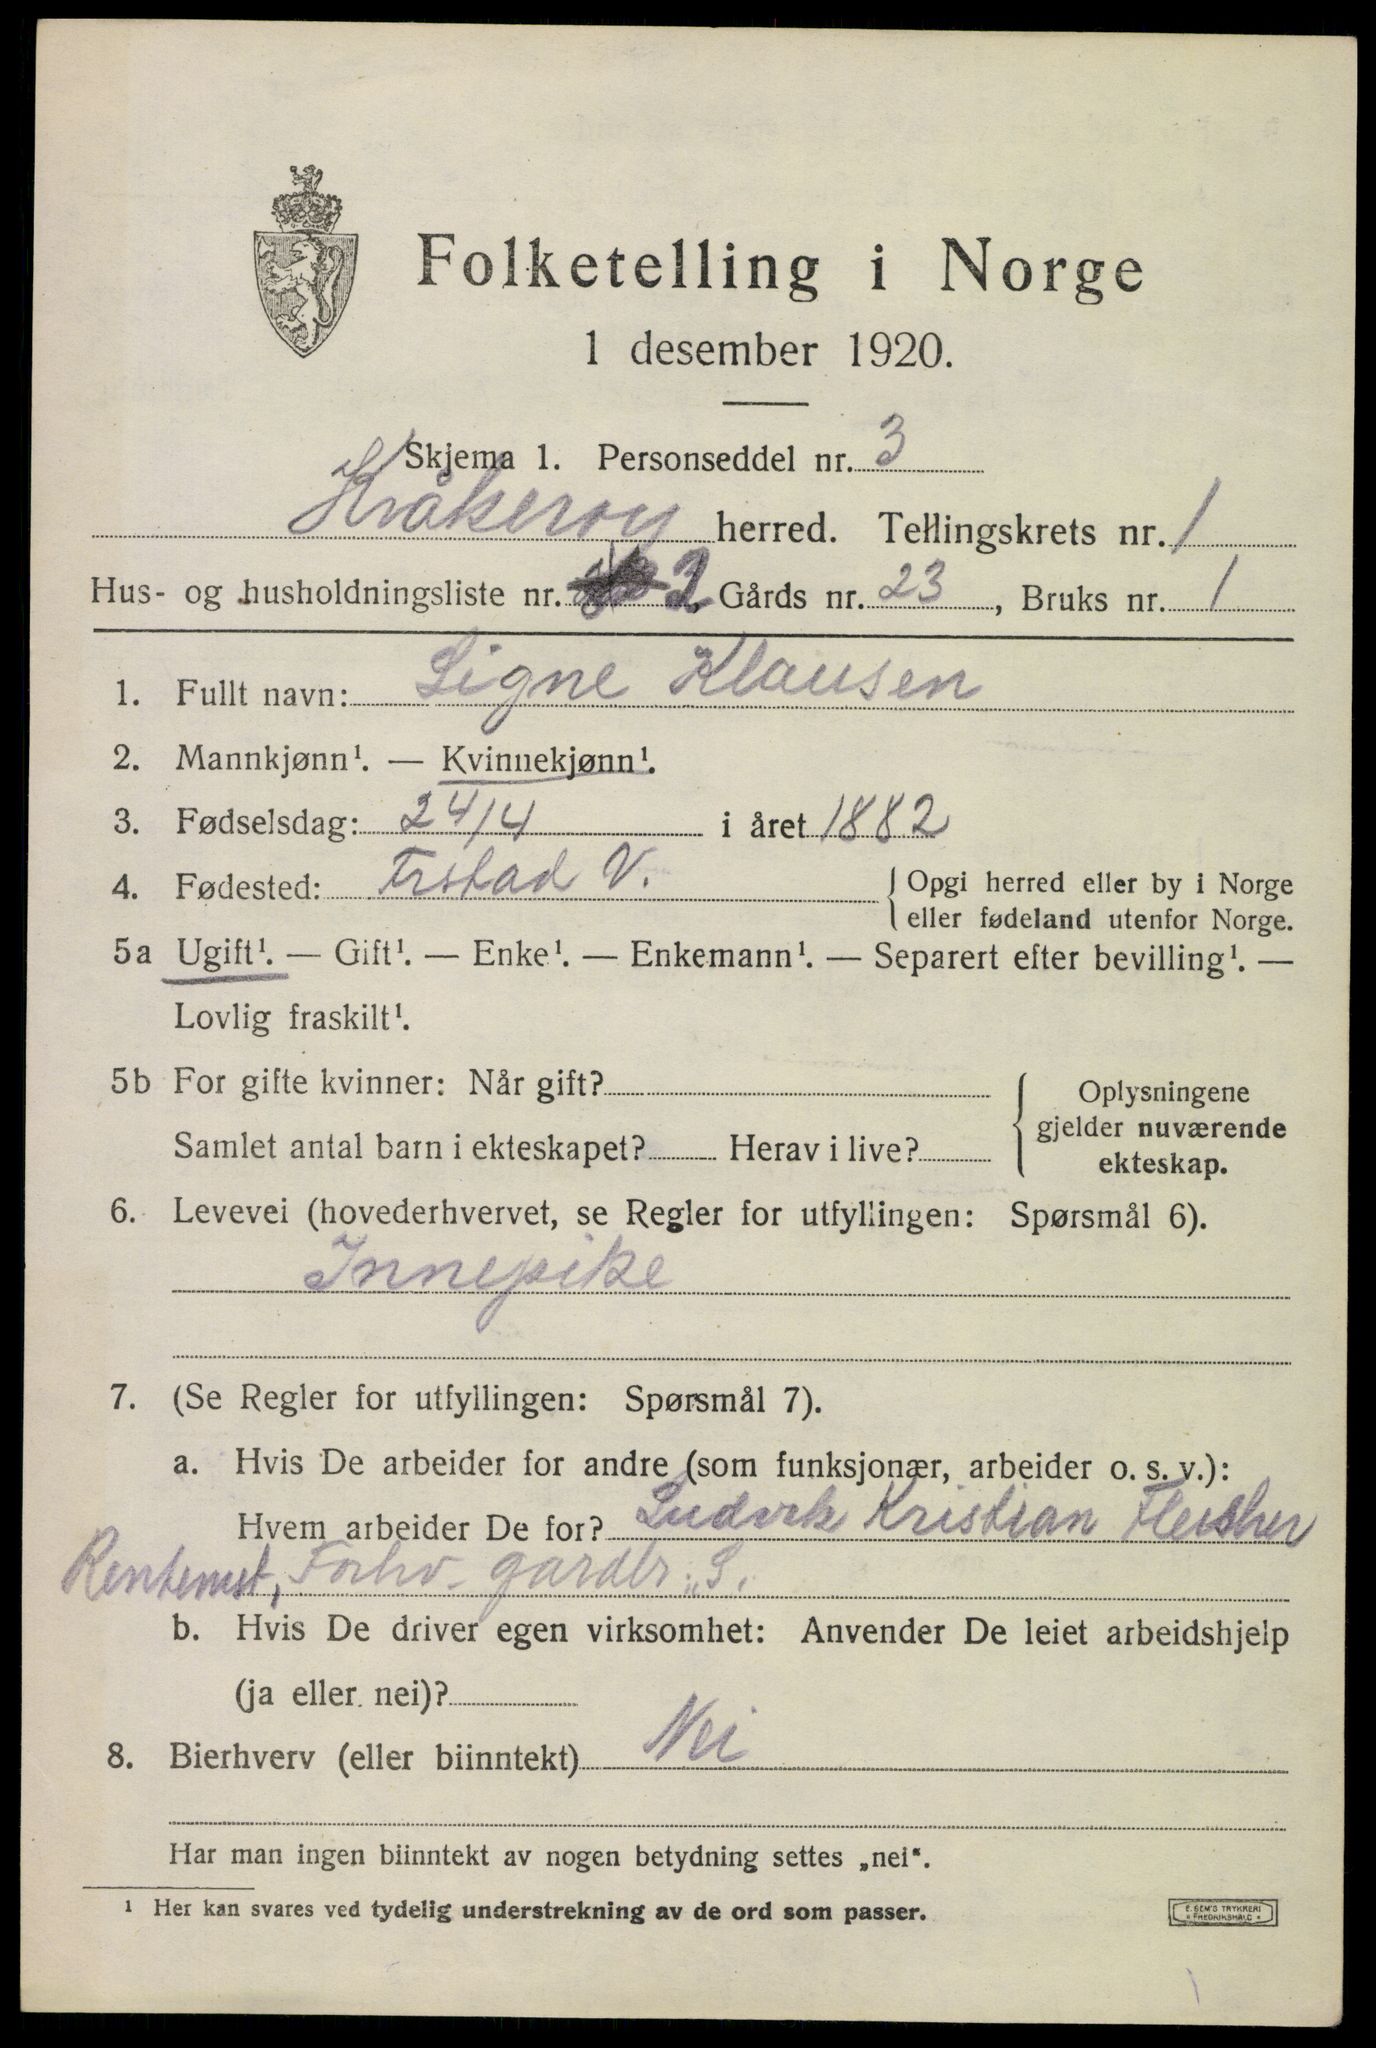 Folketelling i Norge
1 desember 1920.
Skjema 1. Personseddel nr. 3
Kråkerøy herred. Tellingskrets nr. 1
Hus- og husholdningsliste nr. 2, Gårds nr. 23, Bruks nr. 1
1. Fullt navn: Signe Klausen
2. Mannkjønn¹. — Kvinnekjønn¹.
3. Fødselsdag: 24/4 i året 1882
4. Fødested: Frstad V. { Opgi herred eller by i Norge
eller fødeland utenfor Norge.
5a Ugift¹. — Gift¹. — Enke¹. — Enkemann¹. — Separert efter bevilling¹. —
Lovlig fraskilt¹.
5b For gifte kvinner: Når gift? { Oplysningene
gjelder nuværende
Samlet antal barn i ekteskapet? Herav i live?
ekteskap.
6. Levevei (hovederhvervet, se Regler for utfyllingen: Spørsmål 6).
Innepike
7. (Se Regler for utfyllingen: Spørsmål 7).
a. Hvis De arbeider for andre (som funksjonær, arbeider o. s. v.):
Hvem arbeider De for? Ludvik Kristian Fleisher
Rentenist, Forhv. gardbr. S.
b. Hvis De driver egen virksomhet: Anvender De leiet arbeidshjelp
(ja eller nei)?
8. Bierhverv (eller biinntekt) Nei
Har man ingen biinntekt av nogen betydning settes „nei“.
¹ Her kan svares ved tydelig understrekning av de ord som passer.
E. SEM'S TRYKKERI
* FREDRIKSHALD *